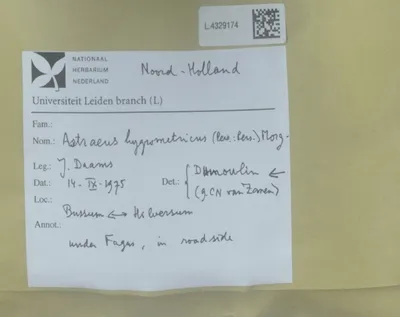 L.4329174
NATIONAAL
HERBARIUM
NEDERLAND
Noord-Holland
Universiteit Leiden branch (L)
Fam.:
Nom.: Astraeus hygrometricus (Pers.: Pers.) Morg.
Leg.: J. Daams
Dat.: 14-IX-1975 Det.: { Dumoulin ←
(& CN van Zanen)
Loc.:
Bussum ↔ Hilversum
Annot.:
under Fagus, in roadside